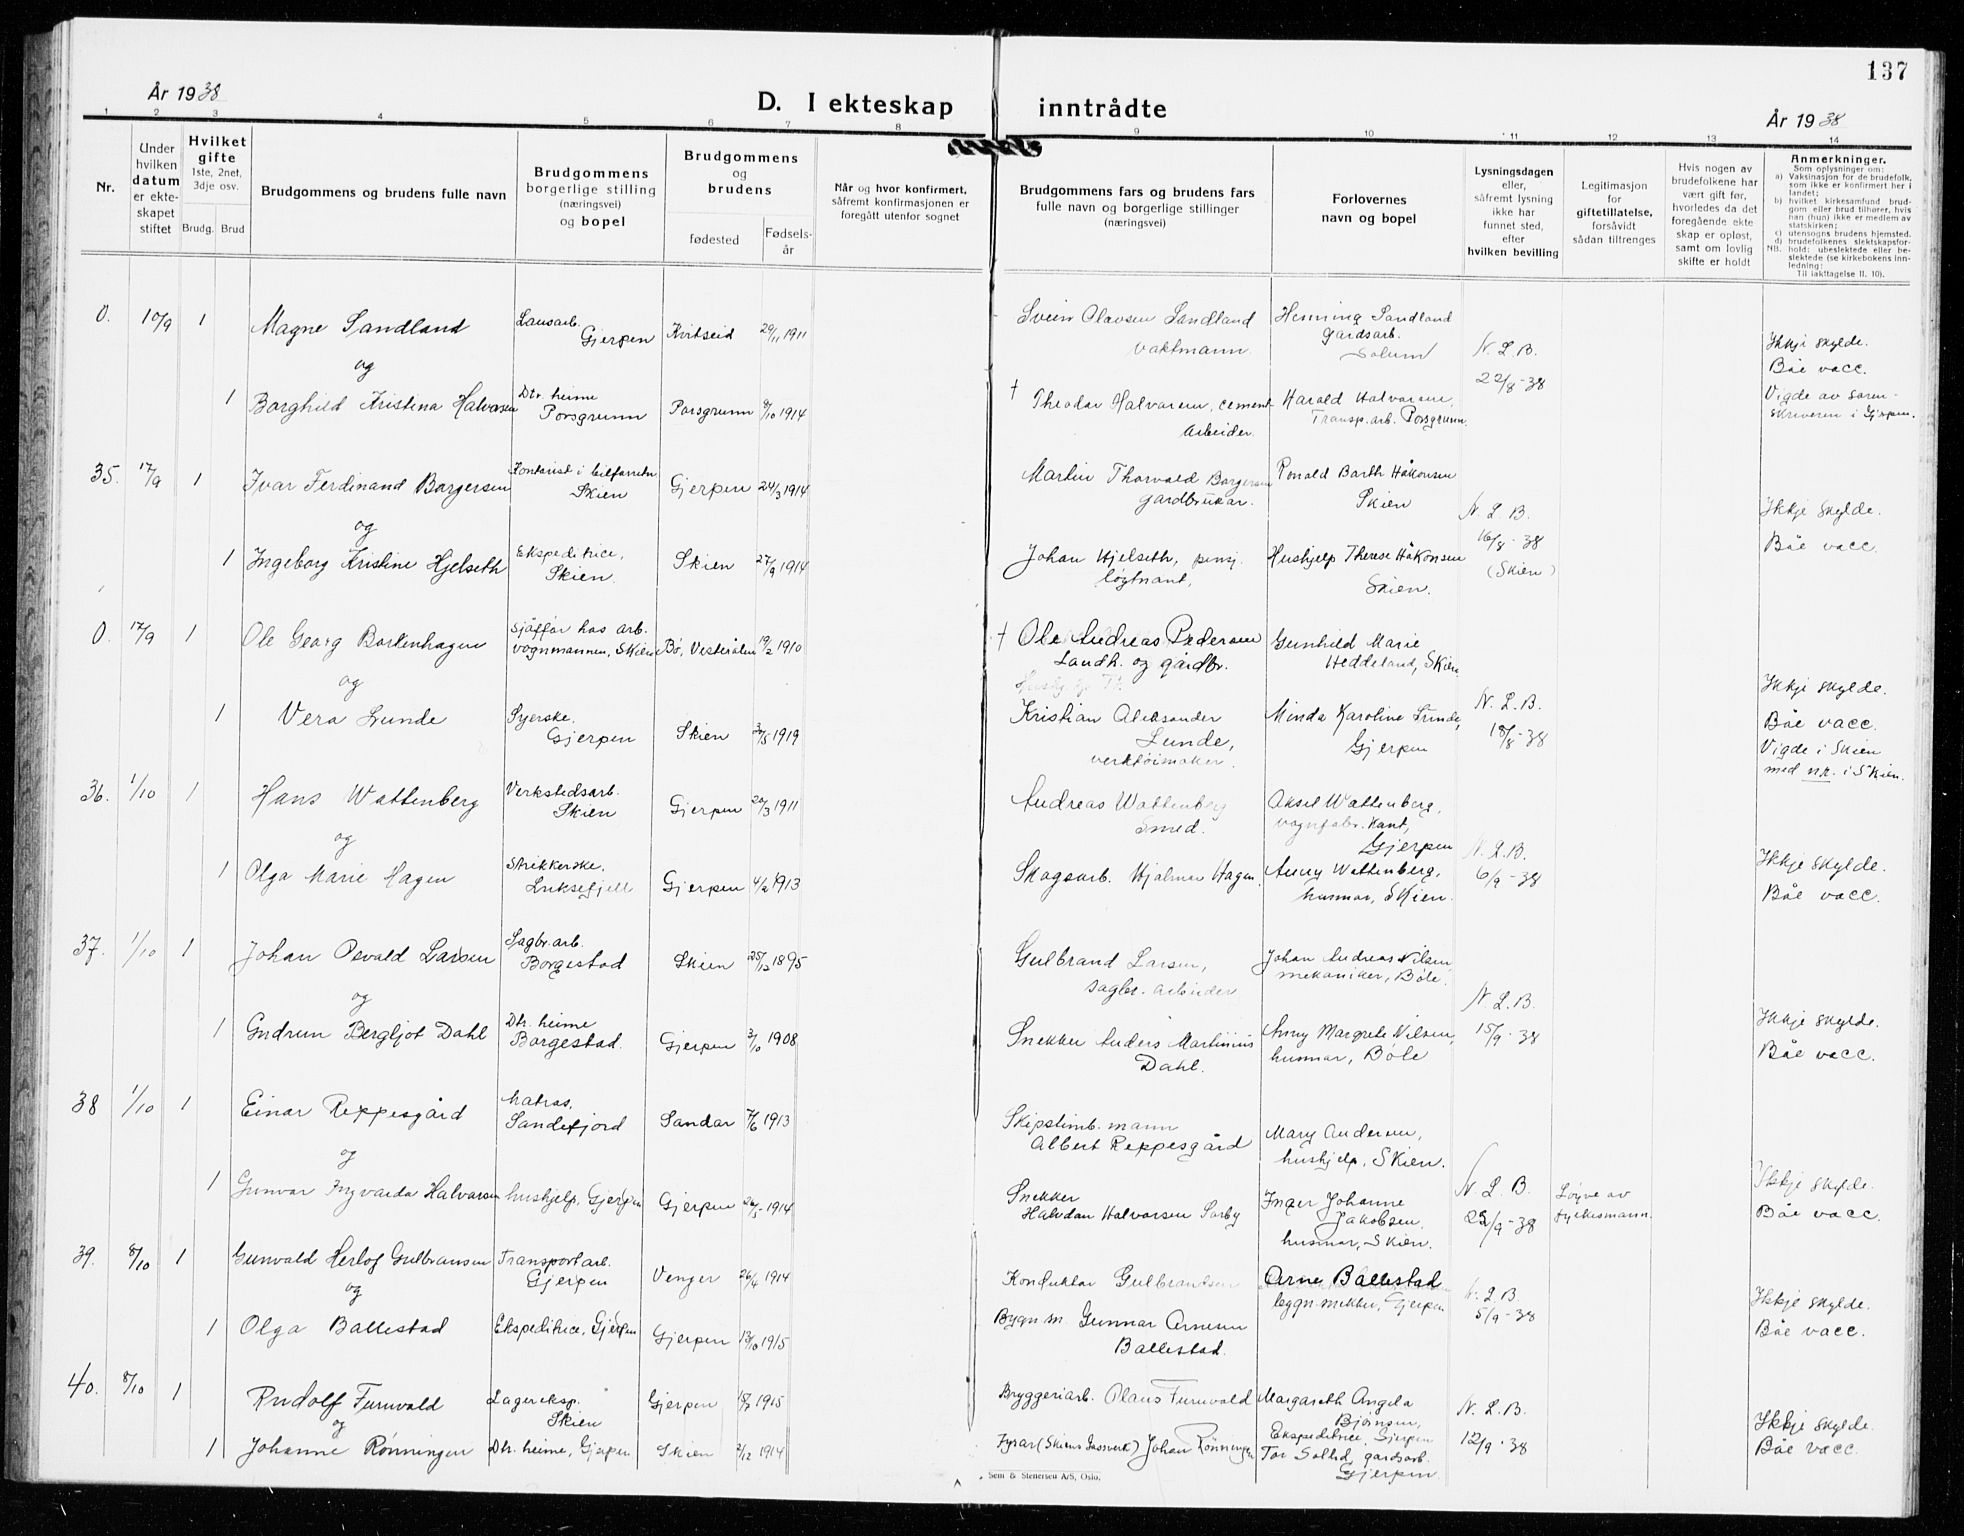 137
År 1938
D. I ekteskap inntrådte
År 1938
1 2 3 4 5 6 7 8 9 10 11 12 13 14
Nr.
Under hvilken datum er ekteskapet stiftet
Hvilket gifte 1ste, 2net, 3dje osv.
Brudg. Brud
Brudgommens og brudens fulle navn
Brudgommens borgerlige stilling (næringsvei) og bopel
Brudgommens og brudens
fødested
Fødselsår
Når og hvor konfirmert, såfremt konfirmasjonen er foregått utenfor sognet
Brudgommens fars og brudens fars fulle navn og borgerlige stillinger (næringsvei)
Forlovernes navn og bopel
Lysningsdagen eller, såfremt lysning ikke har funnet sted, efter hvilken bevilling
Legitimasjon for giftetillatelse, forsåvidt sådan tiltrenges
Hvis nogen av brudefolkene har vært gift før, hvorledes da det foregående ekteskap er opløst, samt om lovlig skifte er holdt
Anmerkninger.
Som oplysninger om:
a) Vaksinasjon for de brudefolk, som ikke er konfirmert her i landet;
b) hvilket kirkesamfund brudgom eller brud tilhører, hvis han (hun) ikke er medlem av statskirken;
c) utensogns brudens hjemsted.
d) brudefolkenes slektskapsforhold: ubeslektede eller beslektede (se kirkebokens innledning:
NB. Til iakttagelse II. 10).
0. 10/9 1 Magne Sandland Lausarb. Gjerpen Kvitseid 29/11 1911 Svein Olavsen Sandland vaktmann. Henning Sandland gardsarb. Solum N. L. B. 22/8-38 Ikkje skylde. Båe vacc.
og
1 Borghild Kristina Halvorsen Dtr. heime Porsgrunn Porsgrunn 9/10 1914 † Theodor Halvorsen, cementarbeider. Harald Halvorsen, Transp.arb. Porsgrunn. Vigde av sorenskriveren i Gjerpen.
35. 17/9 1 Ivar Ferdinand Borgersen Kontorist i bilforretn. Skien Gjerpen 24/3 1914 Martin Thorvald Borgersen gardbrukar. Ronald Barth Håkonsen Skien N. L. B. 16/8-38 (Skien) Ikkje skylde. Båe vacc.
og
1 Ingeborg Kristine Hjelseth Ekspeditrice, Skien. Skien 27/9 1914 Johan Hjelseth, pensj. løytnant, Hushjelp Therese Håkonsen Skien.
0. 17/9 1 Ole Georg Borkenhagen Sjåffør hos arb. vognmannen, Skien Bø, Vesterålen 19/2 1910 † Ole Andreas Pedersen Landh. og gårdbr. Gunhild Marie Heddeland, Skien N. L. B. 18/8-38 Ikkje skylde. Båe vacc.
og
1 Vera Lunde Syerske. Gjerpen Skien 1919 Kristian Aleksander Lunde, verktøimaker. Minda Karoline Lunde, Gjerpen Vigde i Skien med nr. i Skien.
36. 1/10 1 Hans Wattenberg Verkstedsarb. Skien Gjerpen 20/3 1911 Andreas Wattenberg Smed. Aksel Wattenberg, vognfabrikant, Gjerpen N. L. B. 6/9-38 Ikkje skylde. Båe vacc.
og
1 Olga Marie Hagen Strikkerske. Luksefjell Gjerpen 4/2 1913 Skogsarb. Hjalmar Hagen. Anny Wattenberg, husmor, Skien.
37. 1/10 1 Johan Osvald Larsen Sagbr.arb. Borgestad Skien 25/12 1895 Gulbrand Larsen, sagbr. arbeider Johan Andreas Nilsen mekaniker, Bøle. N. L. B. 15/9-38 Ikkje skylde. Båe vacc.
og
1 Gudrun Bergljot Dahl Dtr. heime Borgestad. Gjerpen 3/10 1908 Snekker Anders Martinius Dahl. Anny Margrete Nilsen, husmor, Bøle
38 1/10 1 Einar Reppesgård Matros, Sandefjord Sandar 7/6 1913 Skipstimb.mann Albert Reppesgård Mary Andersen, hushjelp, Skien. N. L. B. 23/9-38 Løyve av fylkesmann. Ikkje skylde. Båe vacc.
og
1 Gunvor Ingvarda Halvorsen hushjelp, Gjerpen Gjerpen 26/5 1914 Snekker Halvdan Halvorsen Sørby Inger Johanne Jakobsen, husmor, Skien.
39. 8/10 1 Gunvald Herlof Gulbransen Transportarb. Gjerpen Venger 26/4 1914 Konduktør Gulbrandsen Arne Ballestad byggn.snekker, Gjerpen N. L. B 5/9-38 Ikkje skylde. Båe vacc.
og
1 Olga Ballestad Ekspeditrice, Gjerpen Gjerpen 13/10 1915 Bygn m. Gunnar Arnesen Ballestad.
40. 8/10 1 Rudolf Furuvald Lagereksp. Skien Gjerpen 1915 Bryggeriarb. Olaus Furuvald Margareth Angela Bjønsen, Ekspeditrice Gjerpen N. L. B. 12/9-38 Ikkje skylde. Båe vacc.
og
1 Johanne Rønningen Dtr. heime, Gjerpen Skien 2/12 1914 Fyrar (Skiens Gassverk) Johan Rønningen Tor Sollid, gardsarb. Gjerpen
Sem & Stenersen A/S, Oslo.